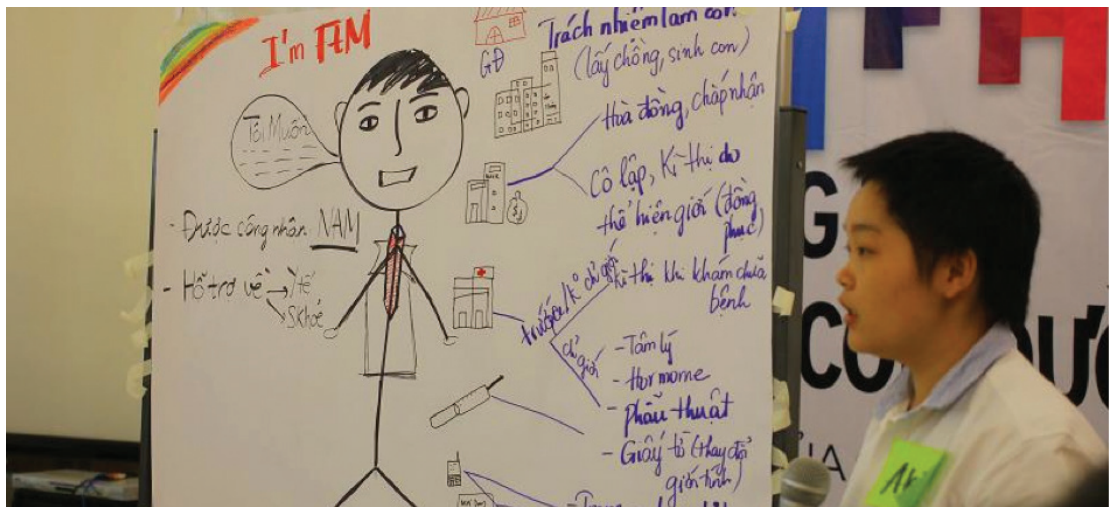 I'm FTM
Tôi Muốn
- Được công nhận NAM
- Hỗ trợ về → Ytế
→ SKhoẻ
GĐ
Trách nhiệm làm con
(lấy chồng, sinh con)
Hoà đồng, chấp nhận
Cô lập, Kì thị do
thể hiện giới (đồng
phục)
trước/K chỉ giới
Kì thị khi khám chữa
bệnh
chỉ giới
- Tâm lý
- Hormome
- phẫu thuật
- Giấy tờ (thay đổi
giới tính)
G
CO
ỦA